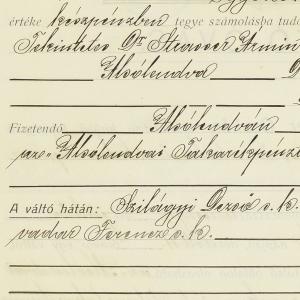 értéke készpénzben tegye számolásba tudó
Tekintetes Dr Strasser Ármin
Alsólendva
Fizetendő Alsólendván
az „Alsólendvai Takarékpénz
A váltó hátán: Szilágyi Dezső s. k.
vadar Ferencz s. k.